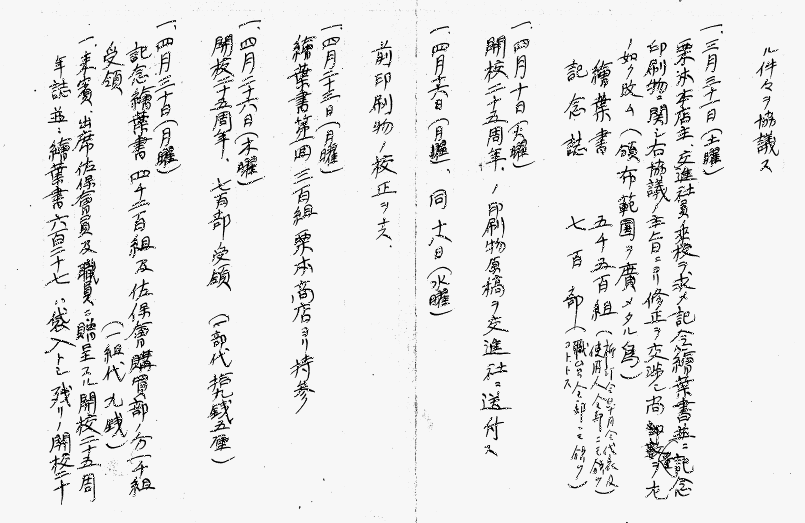 ル件々ヲ協議ス
一、三月三十一日(土曜)
栗本本店主、交進社員ノ来校ヲ求メ記念繪葉書並ニ記念
印刷物ニ関シ右協議ノ主旨ニヨリ修正ヲ交渉シ尚部数ヲ左
ノ如ク改ム(領布範圍ヲ廣メタル為)
繪葉書 五千五百組
使用人全部ニモ領ツ
記念誌 七百部(職員全部ニモ領ツ
コトトス
一、四月十日(火曜)
開校二十五周年ノ印刷物原稿ヲ交進社ニ送付ス
一、四月十六日(月曜)、同十八日(水曜)
前印刷物ノ校正ヲ之
一、四月二十三日(月曜)
繪葉書第一回三百組栗本商店ヨリ持参
一、四月二十六日(木曜)
開校二十五周年、七百部ノ受領(一部代拾九銭五厘)
一、四月三十日(月曜)
記念繪葉書四千五百組及佐保會購買部ノ分一千組
受領(一組代九銭)
一、来賓、出席佐保會員及職員ニ贈呈スル開校二十五周
年誌並ニ繪葉書六百二十七ハ袋入トシ残リノ開校二十